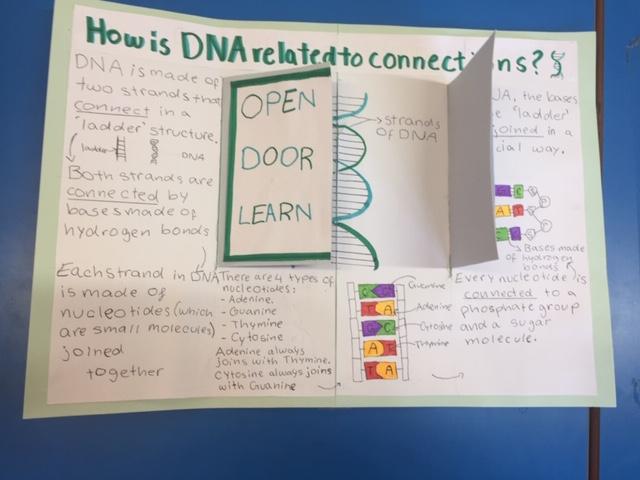 How is DNA related to connections?
DNA is made of
two strands that
connect in a
'ladder' structure.
ladder
DNA
Both strands are
connected by
bases made of
hydrogen bonds
Each strand in DNA
is made of
nucleotides (which
are small molecules)
joined
together
OPEN
DOOR
LEARN
strands
OF DNA
There are 4 types of
nucleotides:
- Adenine.
- Guanine
- Thymine
- Cytosine
Adenine always
joins with Thymine.
Cytosine always joins
with Guanine
C G
T A
G C
A T
T A
Adenine
Cytosine
Thymine
NA, the bases
'ladder'
joined in a
cial way.
G C
A T
Bases made
of hydrogen
bonds
Every nucleotide is
connected to a
phosphate group
and a sugar
molecule.